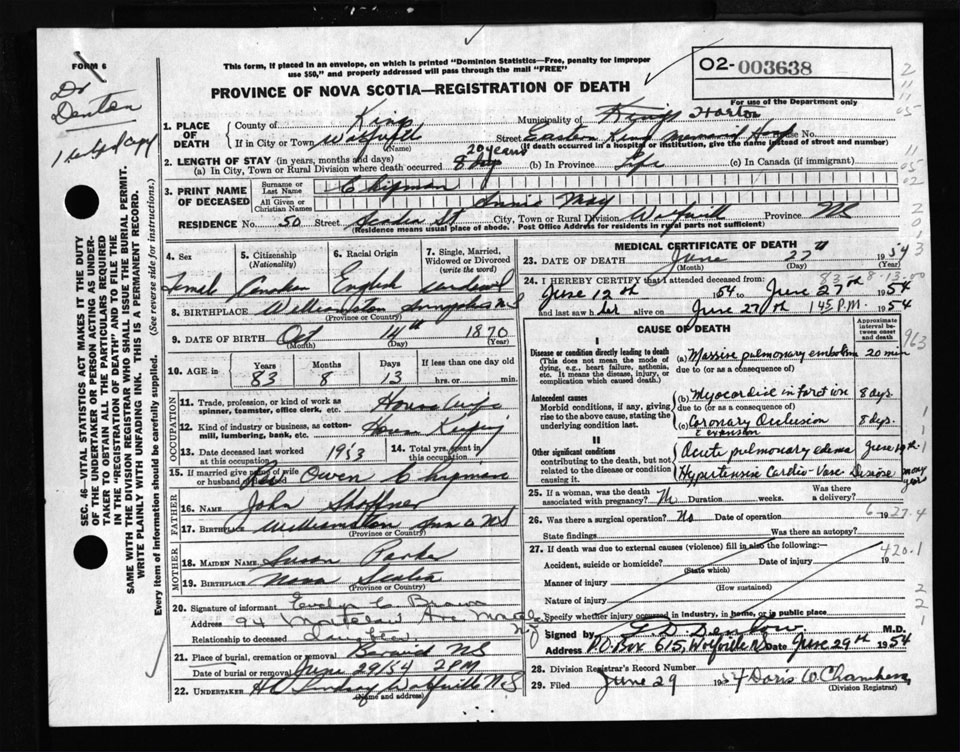 FORM 6
Dr Denton
This form, if placed in an envelope, on which is printed "Dominion Statistics—Free, penalty for improper
use $50," and properly addressed will pass through the mail "FREE"
O2-003638
For use of the Department only
PROVINCE OF NOVA SCOTIA—REGISTRATION OF DEATH
1. PLACE OF DEATH
County of Kings
Municipality of Kings Horton
If in City or Town Wolfville
(Name)
Street Eastern Kings Memorial Hosp No.
(If death occurred in a hospital or institution, give the name instead of street and number)
2. LENGTH OF STAY (in years, months and days)
(a) In City, Town or Rural Division where death occurred 20 years 8 days (b) In Province Life (c) In Canada (if immigrant)
3. PRINT NAME OF DECEASED
Surname or Last Name Chipman
All Given or Christian Names Annie May
RESIDENCE No. 50 Street Acadia St City, Town or Rural Division Wolfville Province NS
(Residence means usual place of abode. Post Office Address for residents in rural parts not sufficient)
4. Sex Female
5. Citizenship (Nationality) Canadian
6. Racial Origin English
7. Single, Married, Widowed or Divorced (write the word) widowed
8. BIRTHPLACE Williamston Annapolis NS
(Province or Country)
9. DATE OF BIRTH Oct 14th 1870
(Month) (Day) (Year)
10. AGE in Years 83 Months 8 Days 13
If less than one day old
hrs. or min.
OCCUPATION
11. Trade, profession, or kind of work as spinner, teamster, office clerk, etc. House Wife
12. Kind of industry or business, as cotton-mill, lumbering, bank, etc. House Keeping
13. Date deceased last worked at this occupation 1953
14. Total yrs. spent in this occupation
15. If married give name of wife or husband of deceased Owen Chipman
FATHER
16. Name John Shaffner
17. Birthplace Williamston Ann Co NS
(Province or Country)
MOTHER
18. MAIDEN NAME Susan Parker
19. BIRTHPLACE Nova Scotia
(Province or Country)
20. Signature of informant Evelyn C Brown
Address 94
Relationship to deceased daughter
21. Place of burial, cremation or removal Berwick NS
Date of burial or removal June 29/54 2 PM
22. UNDERTAKER Lindsay Wolfville N.S
(Name and address)
MEDICAL CERTIFICATE OF DEATH
23. DATE OF DEATH June 27th 1954
(Month) (Day) (Year)
83-8-13-00
24. I HEREBY CERTIFY that I attended deceased from:
June 12th 1954 to June 27th 1954
and last saw her alive on June 27th 1 45 P.M. 1954
CAUSE OF DEATH
Approximate interval between onset and death
I
Disease or condition directly leading to death
(This does not mean the mode of dying, e.g., heart failure, asthenia, etc. It means the disease, injury, or complication which caused death.)
(a) Massive pulmonary embolism 20 min
due to (or as a consequence of)
Antecedent causes
Morbid conditions, if any, giving rise to the above cause, stating the underlying condition last.
(b) Myocardial infarction 8 days.
due to (or as a consequence of)
(c) Coronary Occlusion 8 dys.
c extension
II
Other significant conditions
contributing to the death, but not related to the disease or condition causing it.
Acute pulmonary edema June 19th
Hypertensive Cardio-Vasc Disease many years
25. If a woman, was the death associated with pregnancy? No Duration weeks. Was there a delivery?
26. Was there a surgical operation? No Date of operation 19
State findings Was there an autopsy?
27. If death was due to external causes (violence) fill in also the following:—
420.1
Accident, suicide or homicide? Date of injury 19
(State which)
Manner of injury
(How sustained)
Nature of injury
Specify whether injury occurred in industry, in home, or in public place
Signed by M.D.
Address P.O. Box 615, Wolfville NS Date June 29th 1954
28. Division Registrar's Record Number
29. Filed June 29 1954 Doris W. Chambers
(Division Registrar)
SEC. 46—VITAL STATISTICS ACT MAKES IT THE DUTY
OF THE UNDERTAKER OR PERSON ACTING AS UNDER-
TAKER TO OBTAIN ALL THE PARTICULARS REQUIRED
IN THE "REGISTRATION OF DEATH" AND TO FILE THE
SAME WITH THE DIVISION REGISTRAR WHO SHALL ISSUE THE BURIAL PERMIT.
WRITE PLAINLY WITH UNFADING INK. THIS IS A PERMANENT RECORD.
Every item of information should be carefully supplied. (See reverse side for instructions.)